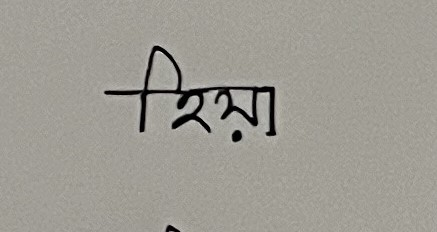 হিয়া